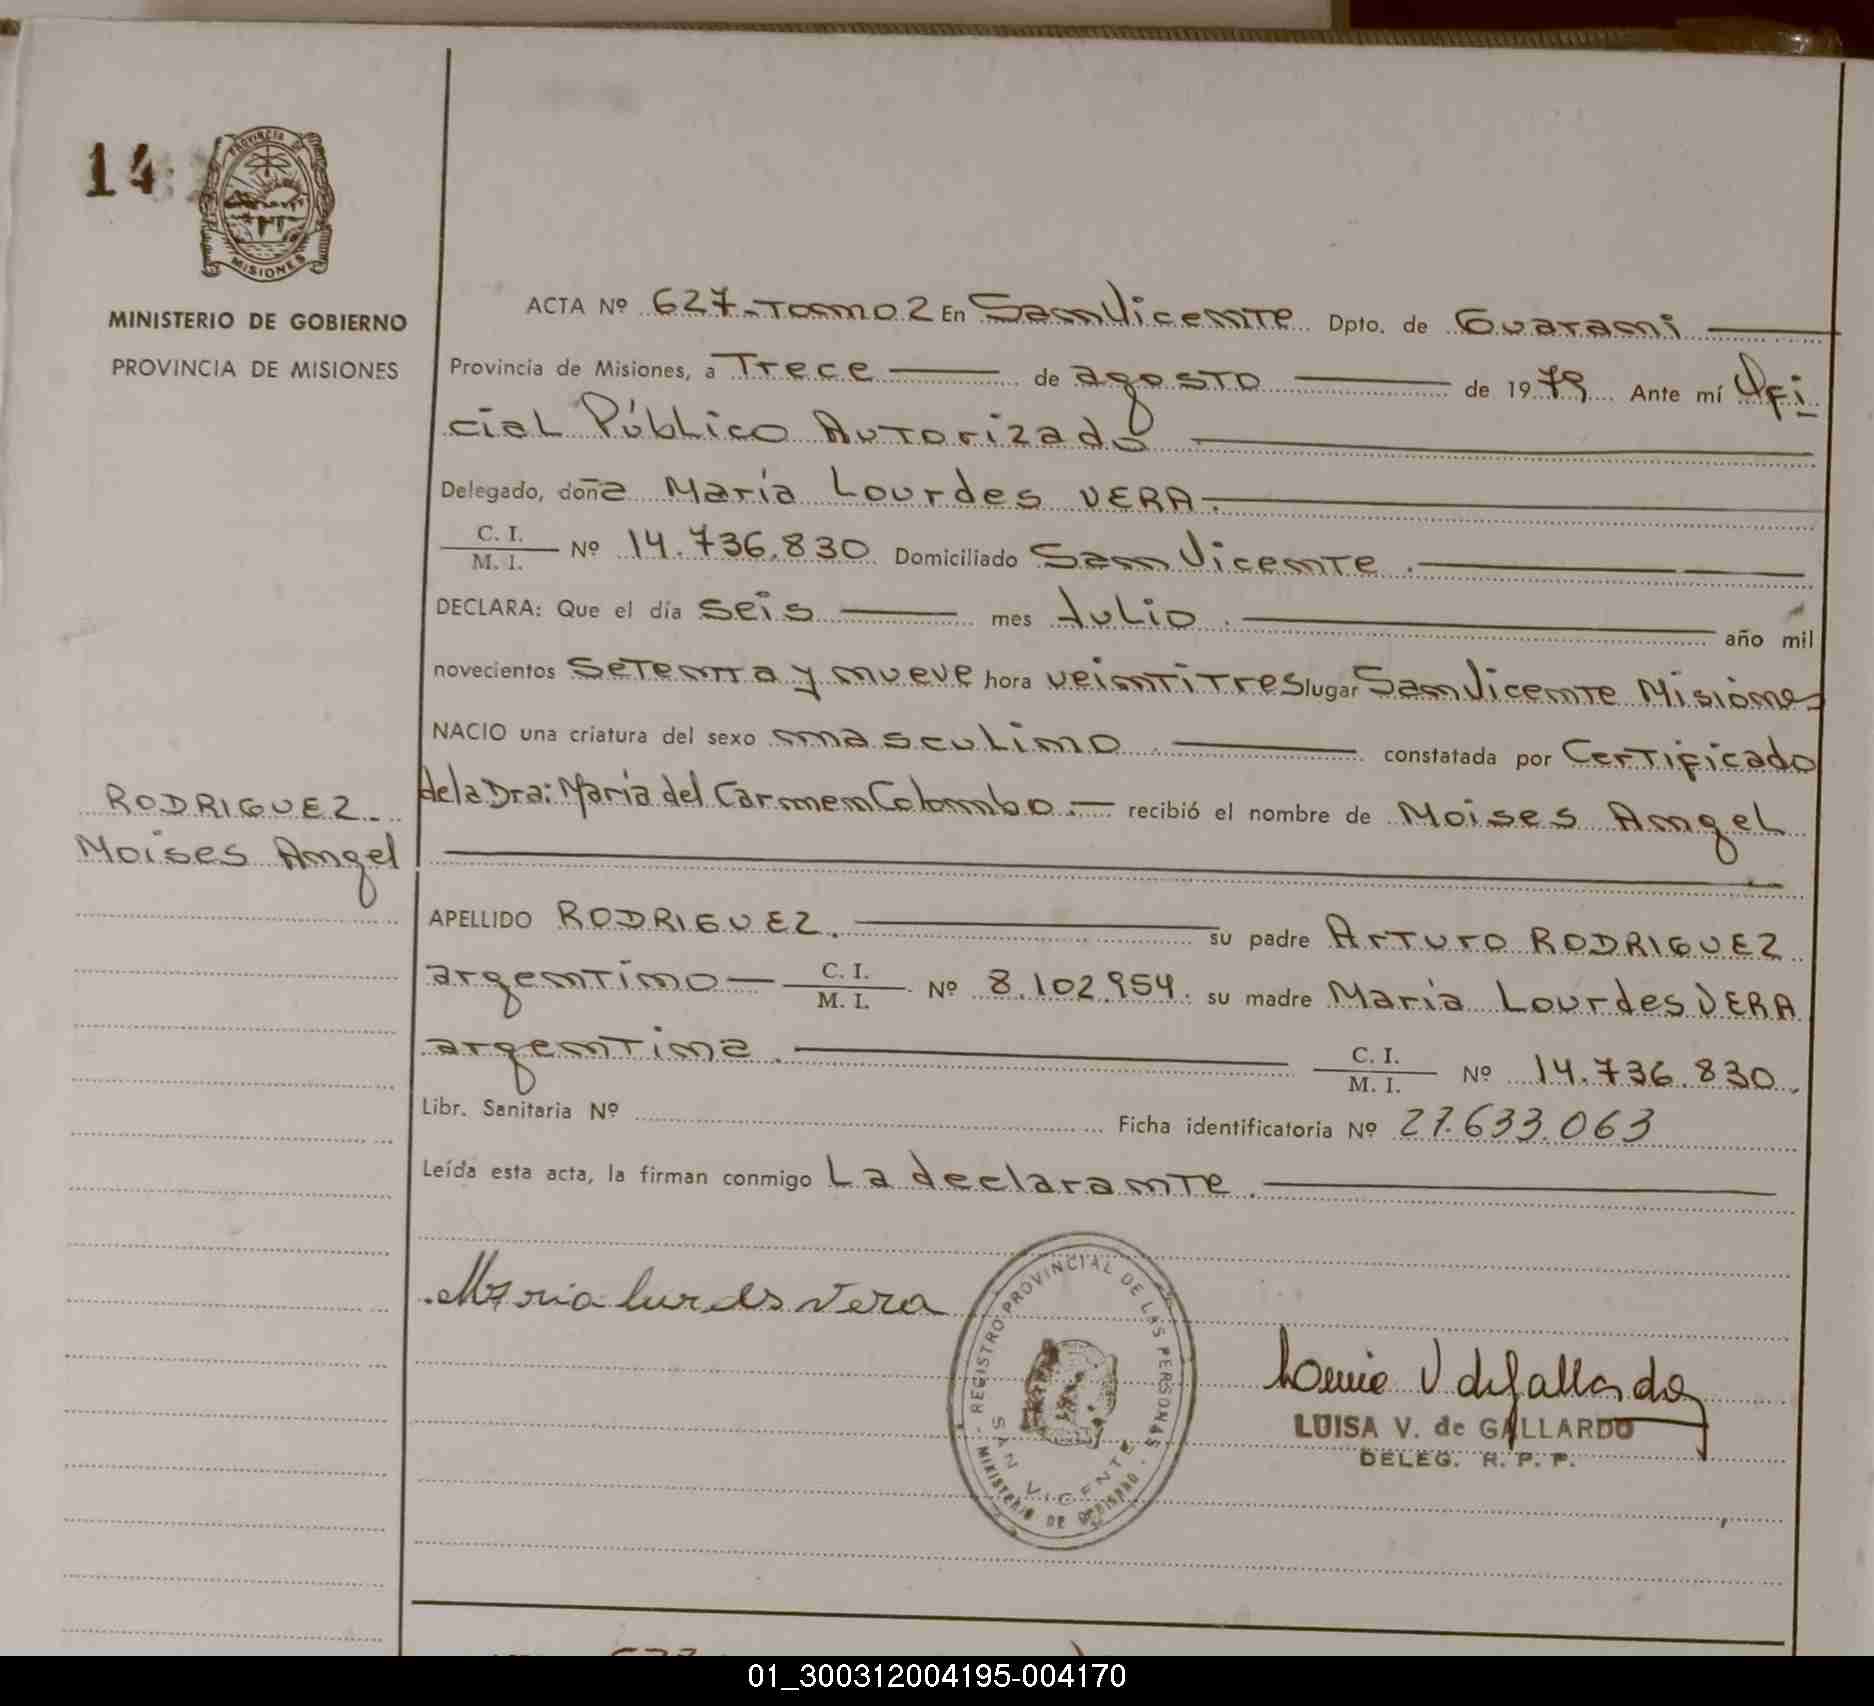 14
PROVINCIA DE
MISIONES
MINISTERIO DE GOBIERNO
PROVINCIA DE MISIONES
ACTA Nº 627.-Tomo 2 En San Vicente Dpto. de Guarani
Provincia de Misiones, a Trece de agosto de 1979 Ante mí Ofi
cial Público Autorizado
Delegado, doña María Lourdes VERA.
C. I.
M. I. Nº 14.736.830 Domiciliado San Vicente.
DECLARA: Que el día seis mes Julio. año mil
novecientos setenta y nueve hora veintitres lugar San Vicente Misiones
NACIO una criatura del sexo masculino. constatada por Certificado
de la Dra: María del Carmen Colombo.- recibió el nombre de Moises Angel
RODRIGUEZ.
Moises Angel
APELLIDO RODRIGUEZ. su padre Arturo RODRIGUEZ
argentino C. I.
M. I. Nº 8.102.954. su madre María Lourdes VERA
argentina. C. I.
M. I. Nº 14.736.830.
Libr. Sanitaria Nº Ficha identificatoria Nº 27.633.063
Leída esta acta, la firman conmigo La declarante.
Maria lurdes vera
REGISTRO PROVINCIAL DE LAS PERSONAS
SAN VICENTE
MINISTERIO DE GOBIERNO
Luisa V de Gallardo
LUISA V. de GALLARDO
DELEG. R. P. P.
01_300312004195-004170